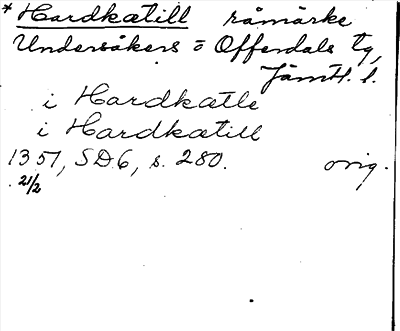 * Hardkætill råmärke
Undersåkers o Offerdals tg,
Jämtl. l.
i Hardkætle
i Hardkætill
1357, SD6, s. 280. orig.
21/2